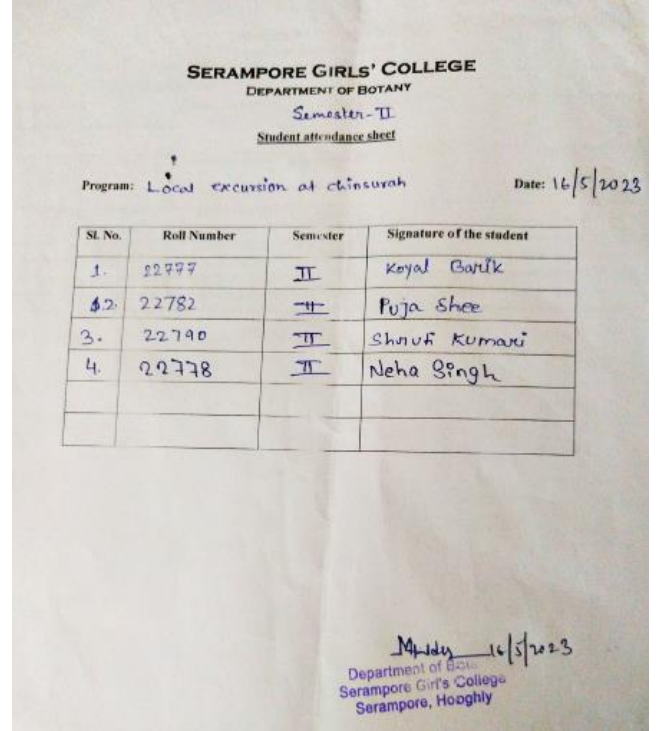 SERAMPORE GIRLS' COLLEGE
DEPARTMENT OF BOTANY
Semester-II
Student attendance sheet
Program: Local excursion at chinsurah Date: 16/5/2023
Sl. No. Roll Number Semester Signature of the student
1. 22777 II Koyal Barik
2. 22782 II Puja Shee
3. 22790 II Shruti Kumari
4. 22778 II Neha Singh
16/5/2023
Department of
Serampore Girl's College
Serampore, Hooghly